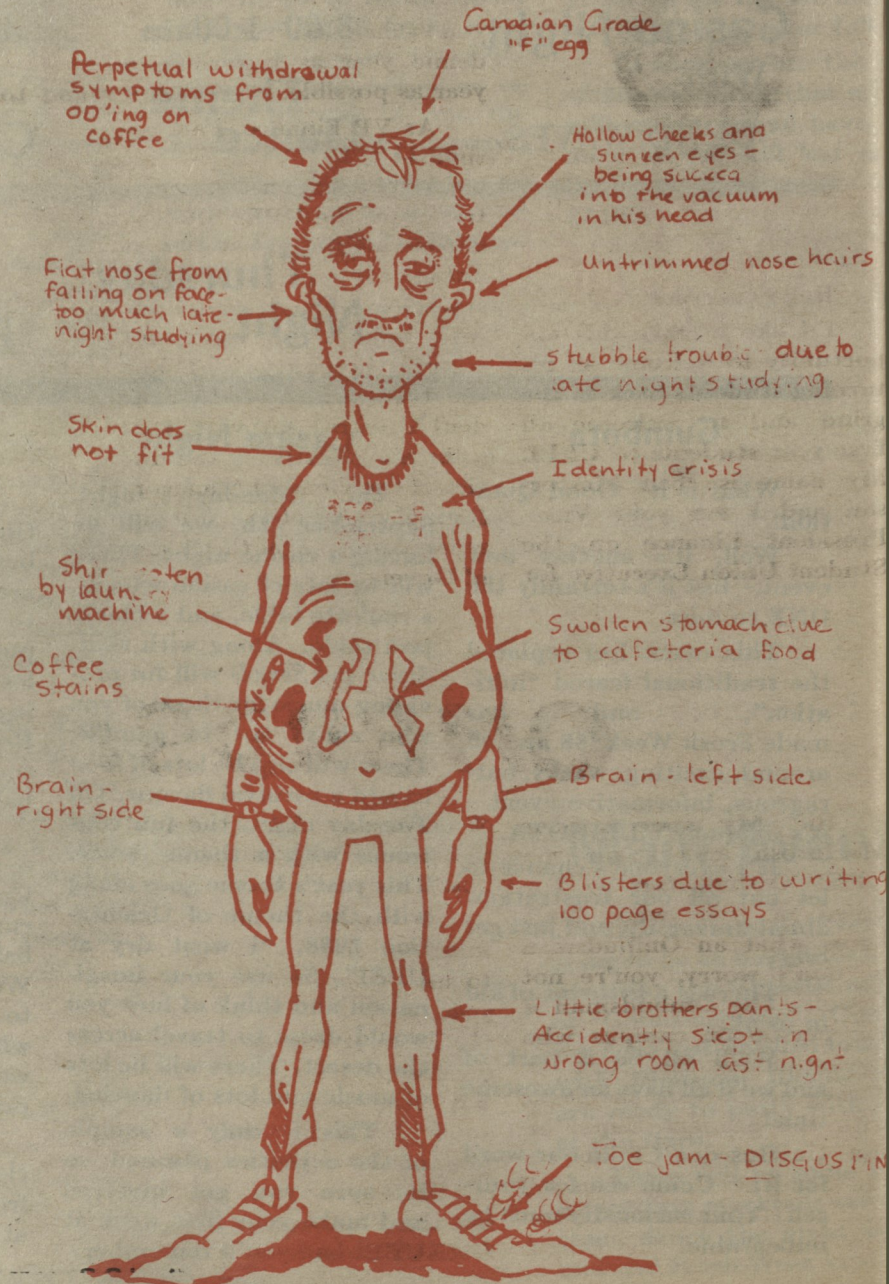 Canadian Grade
"F" egg
Perpetual withdrawal
symptoms from
OD'ing on
coffee
Hollow cheeks and
sunken eyes -
being sucked
into the vacuum
in his head
Untrimmed nose hairs
Flat nose from
falling on face-
too much late-
night studying
stubble trouble due to
late night studying
Skin does
not fit
Identity crisis
Shirt eaten
by laundry
machine
Swollen stomach due
to cafeteria food
Coffee
stains
Brain -
right side
Brain - left side
Blisters due to writing
100 page essays
Little brothers pants-
Accidently slept in
wrong room last night
Toe jam - DISGUSTIN
year as possible
Student Union Executive, for
worry, you're not